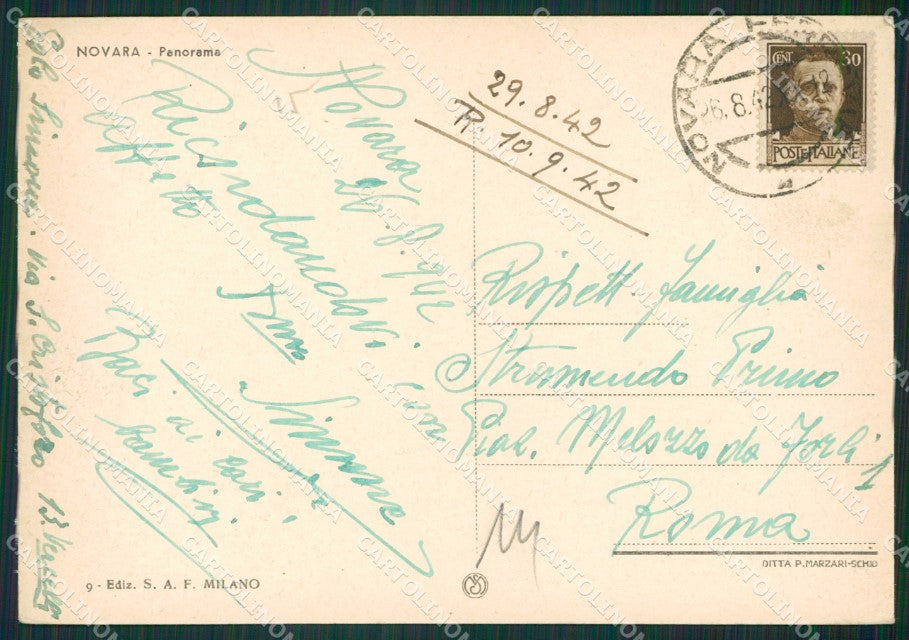 NOVARA - Panorama
Novara
26.8.942
Ricordandovi con
affetto
Simone
Baci ai cari
bambini
29.8.42
R. 10.9.42
NOVARA
26.8.42
CENT. 30
POSTE ITALIANE
Rispett. famiglia
Stramendo Primo
Piaz. Melozzo da Forlì 1
Roma
9 - Ediz. S. A. F. MILANO
DITTA P. MARZARI-SCHIO
Via S. Cristoforo 13. Vercelli
CARTOLINOMANIA